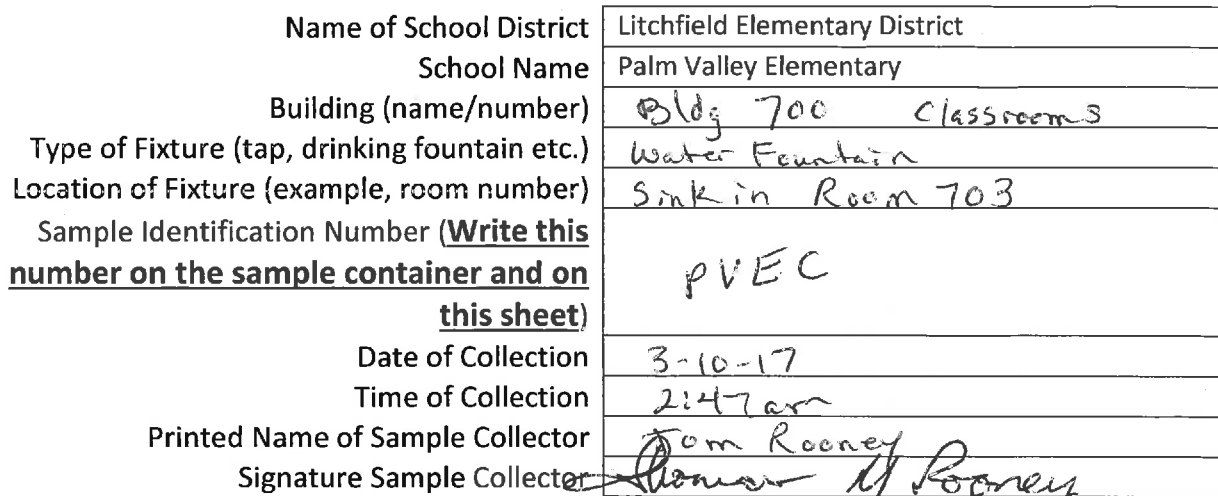 Name of School District Litchfield Elementary District
School Name Palm Valley Elementary
Building (name/number) Bldg 700 Classrooms
Type of Fixture (tap, drinking fountain etc.) Water Fountain
Location of Fixture (example, room number) Sink in Room 703
Sample Identification Number (Write this
number on the sample container and on
this sheet) PVEC
Date of Collection 3-10-17
Time of Collection 2:47 am
Printed Name of Sample Collector Tom Rooney
Signature Sample Collector Thomas M Rooney